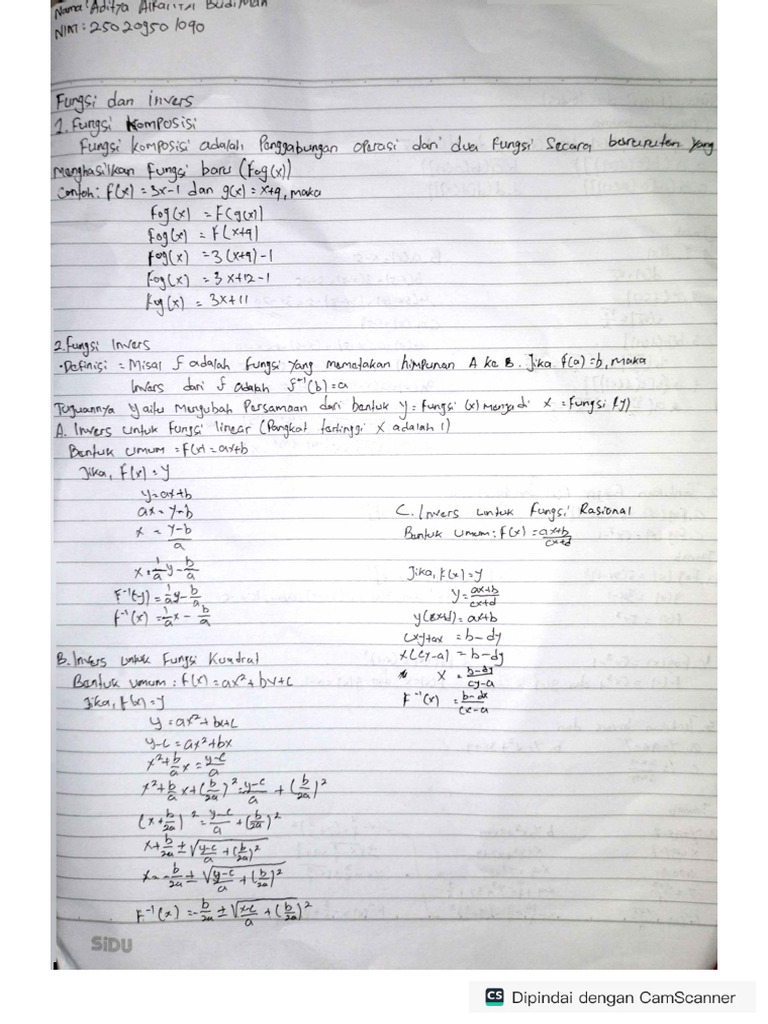 Nama: Aditya Budiman
NIM: 250209501090
Fungsi dan invers
1. Fungsi Komposisi
Fungsi komposisi adalah Penggabungan operasi dari dua Fungsi Secara berurutan yang
menghasilkan Fungsi baru (Fog(x))
Contoh: f(x) = 3x-1 dan g(x) = x+4, maka
Fog(x) = F(g(x))
Fog(x) = F(x+4)
Fog(x) = 3(x+4)-1
Fog(x) = 3x+12-1
Fog(x) = 3x+11
2. Fungsi Invers
• Definisi = Misal f adalah Fungsi Yang memetakan himpunan A ke B. Jika f(a) = b, maka
Invers dari f adalah f⁻¹(b) = a
Tujuannya yaitu Mengubah Persamaan dari bentuk y = fungsi (x) menjadi x = Fungsi (y)
A. Invers untuk Fungsi linear (Pangkat tertinggi x adalah 1)
Bentuk umum = F(x) = ax+b
Jika, F(x) = y
y = ax+b
ax = y-b
x = y-b/a
x = 1/a y - b/a
F⁻¹(y) = 1/a y - b/a
f⁻¹(x) = 1/a x - b/a
B. Invers untuk Fungsi Kuadrat
Bentuk umum : f(x) = ax²+bx+c
Jika, f(x) = y
y = ax²+bx+c
y-c = ax²+bx
x²+b/a x = y-c/a
x²+b/a x+(b/2a)² = y-c/a + (b/2a)²
(x+b/2a)² = y-c/a + (b/2a)²
x+b/2a = ±√y-c/a + (b/2a)²
x = -b/2a ± √y-c/a + (b/2a)²
F⁻¹(x) = -b/2a ± √x-c/a + (b/2a)²
C. Invers untuk Fungsi Rasional
Bentuk umum : f(x) = ax+b/cx+d
Jika, f(x) = y
y = ax+b/cx+d
y(cx+d) = ax+b
cxy+ax = b-dy
x(cy-a) = b-dy
x = b-dy/cy-a
F⁻¹(x) = b-dx/cx-a
SiDU
CS Dipindai dengan CamScanner